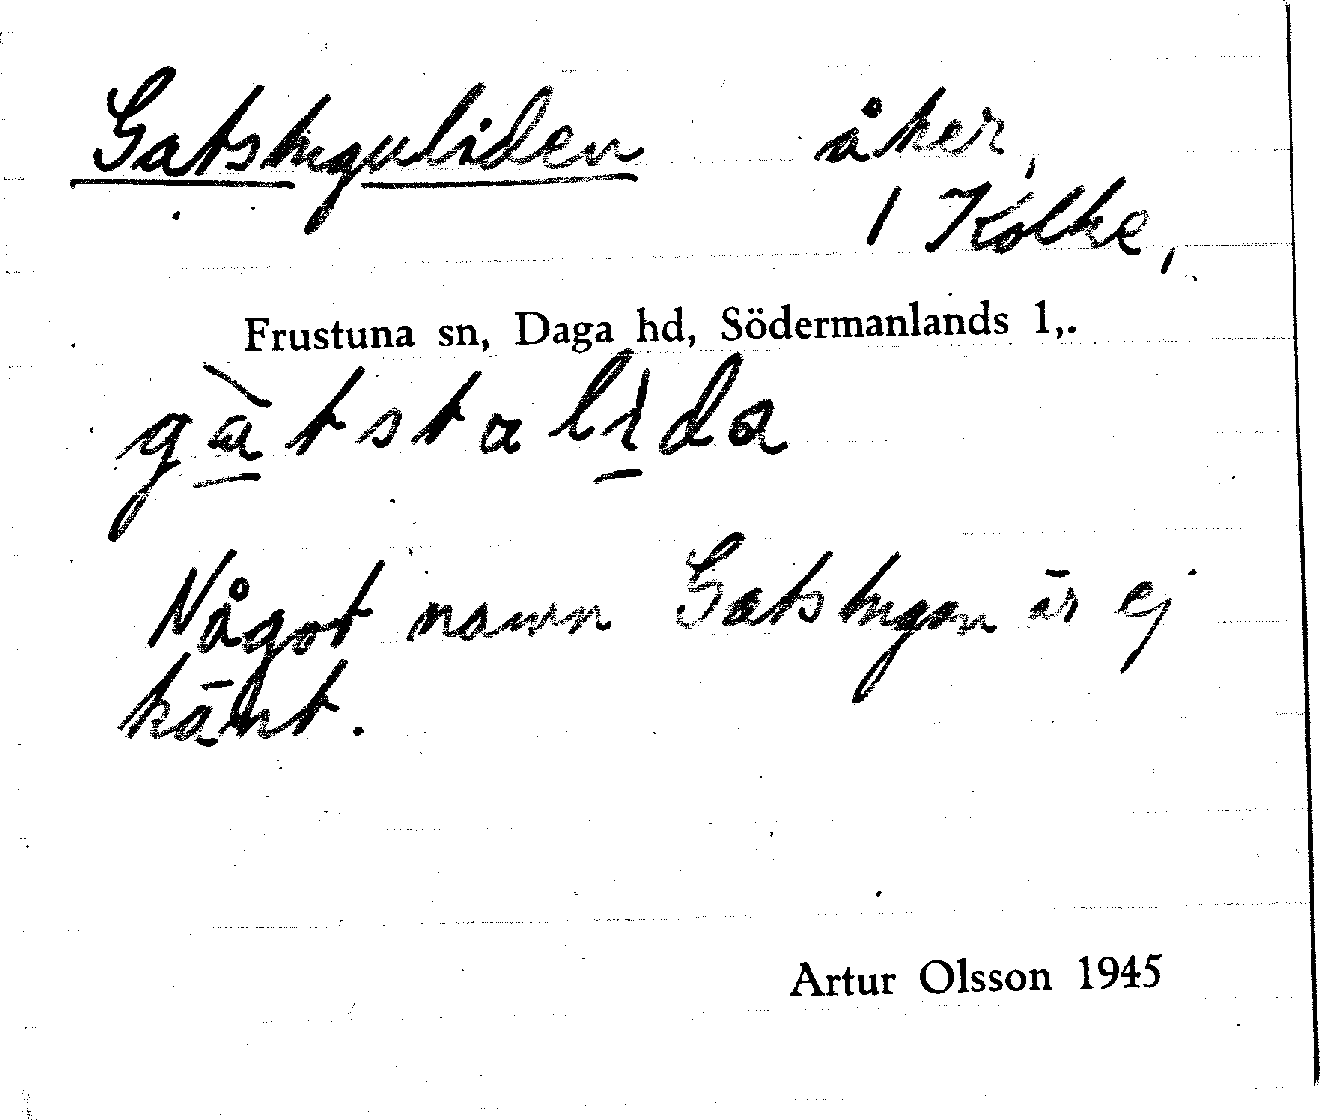 Gatstuguliden åker,
1 Kolke,
Frustuna sn, Daga hd, Södermanlands l,.
gàtstalìda
Något namn Gatstugan är ej
känt.
Artur Olsson 1945